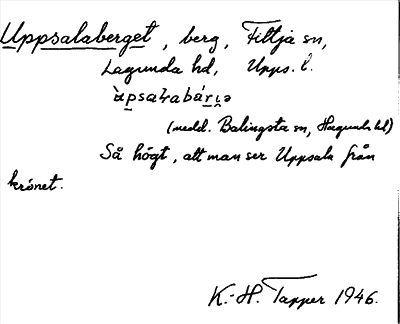 Uppsalaberget, berg, Fittja sn,
Lagunda hd, Upps. l.
(medd. Balingsta sn, Hagunda hd)
Så högt, att man ser Uppsala från
krönet.
K.-H. Tapper 1946.